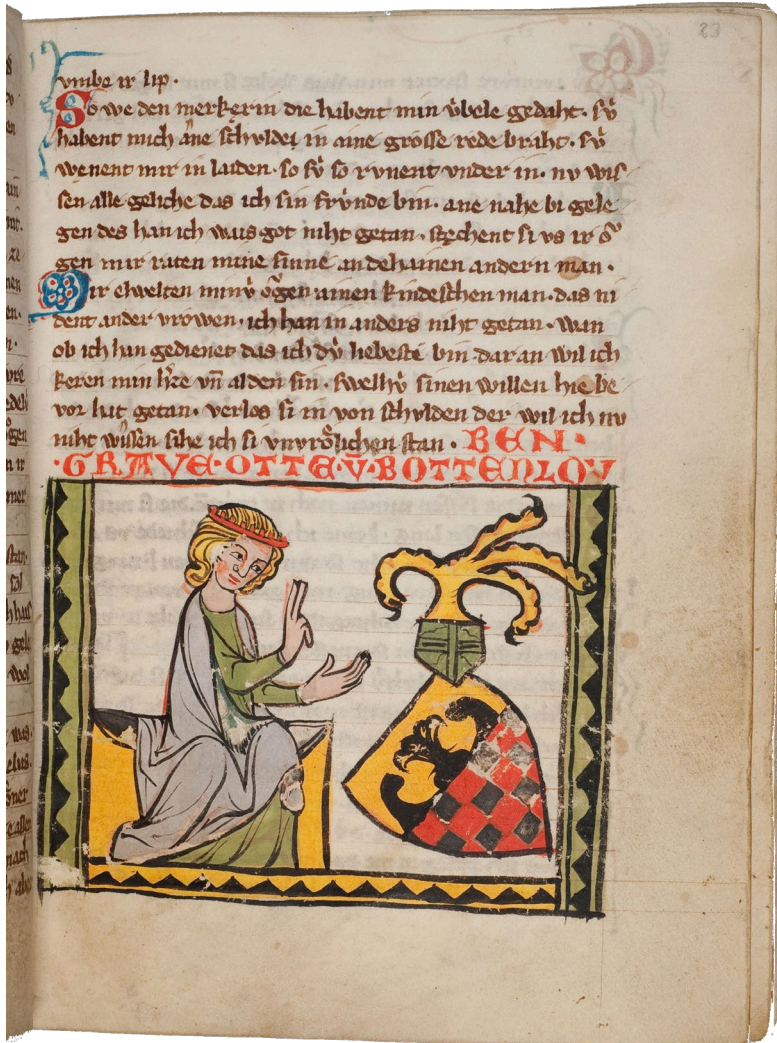 23
vmbe ir lip·
So we den merkerin die habent min v̊bele gedaht· sv̊
habent mich ane schvlde in aine grosse rede braht· sv̊
wenent mir in laiden· so sv̊ so rvnent vnder in· nv wis
sen alle geliche das ich sin frv̊nde bin· ane nahe bi gele
gen des han ich wais got niht getan· stechent si vs ir o̊
gen mir raten mine sinne an dehainen andern man·
Mir erwelten minv̊ o̊gen ainen kindeschen man· das ni
dent ander vrowen· ich han in anders niht getan· wan
ob ich han gedienet das ich dv̊ liebeste bin dar an wil ich
keren min h̾ze vn̄ al den sin· swelhv̊ sinen willen hie be
vor hat getan· verlos si in von schvlden der wil ich nv
niht wissen sihe ich si vnvro̊lichen stan· BEN·
·GRAVE·OTTE·V̄·BOTTENLOV